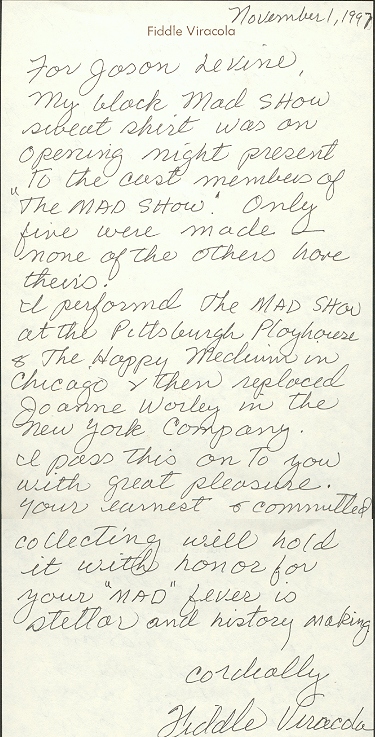 November 1, 1997
Fiddle Viracola
For Jason Levine,
My black Mad SHOW
sweat shirt was an
opening night present
To the cast members of
"The MAD SHOW". Only
five were made &
none of the others have
theirs.
I performed The MAD SHOW
at the Pittsburgh Playhouse
& The Happy Medium in
Chicago & then replaced
Joanne Worley in the
New York Company.
I pass this on To you
with great pleasure.
Your earnest & committed
collecting will hold
it with honor for
your "MAD" fever is
stellar and history making
cordially
Fiddle Viracola